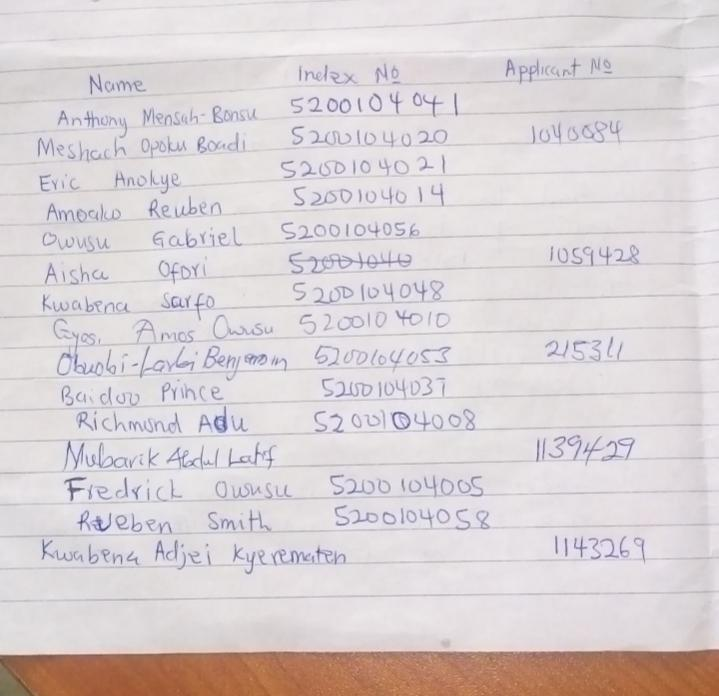 Name Index No Applicant No
Anthony Mensah-Bonsu 5200104041
Meshach Opoku Boadi 5200104020 1040084
Eric Anokye 5200104021
Amoako Reuben 5200104014
Owusu Gabriel 5200104056
Aisha Ofori 52001040 1059428
Kwabena Sarfo 5200104048
Amos Owusu 5200104010
Obuobi-Larbi Benjamin 5200104053 215311
Baidoo Prince 5200104037
Richmond Adu 5200104008
Mubarik Abdul Latif 1139429
Fredrick Owusu 5200104005
Rueben Smith 5200104058
Kwabena Adjei Kyerematen 1143269